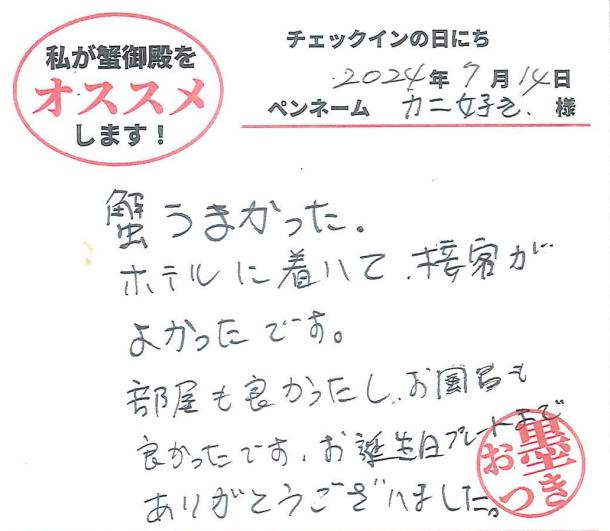 私が蟹御殿を
オススメ
します！
チェックインの日にち
2024年 7月 14日
ペンネーム カニ好き、 様
蟹うまかった。
ホテルに着いて、接客が
よかったです。
部屋も良かったし、お風呂も
良かったです、お誕生日プレートまで
ありがとうございました。
お墨
つき